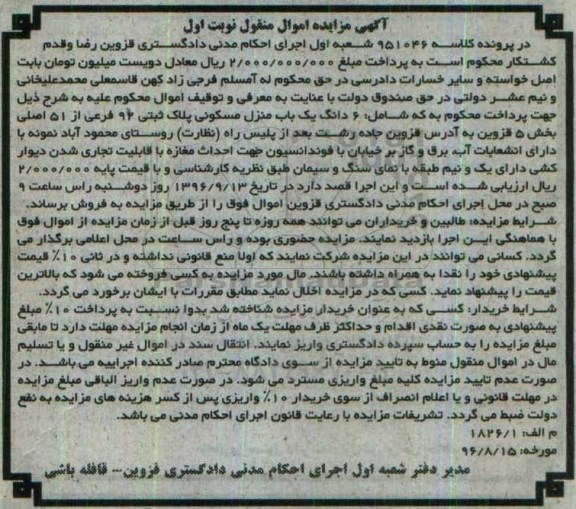 آگهی مزایده اموال منقول نوبت اول
در پرونده کلاسه ۹۵۱۰۴۶ شعبه اول اجرای احکام مدنی دادگستری قزوین رضا وقدم
کشتکار محکوم است به پرداخت مبلغ ۲/۰۰۰/۰۰۰/۰۰۰ ریال معادل دویست میلیون تومان بابت
اصل خواسته و سایر خسارات دادرسی در حق محکوم له آمسلم فرجی زاد کهن قاسمعلی محمدعلیخانی
و نیم عشر دولتی در حق صندوق دولت با عنایت به معرفی و توقیف اموال محکوم علیه به شرح ذیل
جهت پرداخت محکوم به که شامل: ۶ دانگ یک باب منزل مسکونی پلاک ثبتی ۹۲ فرعی از ۵۱ اصلی
بخش ۵ قزوین به آدرس قزوین جاده رشت بعد از پلیس راه (نظارت) روستای محمود آباد نمونه با
دارای انشعابات آب، برق و گاز بر خیابان با فونداسیون جهت احداث مغازه با قابلیت تجاری شدن دیوار
کشی دارای یک و نیم طبقه با نمای سنگ و سیمان طبق نظریه کارشناسی و با قیمت پایه ۲/۰۰۰/۰۰۰
ریال ارزیابی شده است و این اجرا قصد دارد در تاریخ ۱۳۹۶/۹/۱۳ روز دوشنبه راس ساعت ۹
صبح در محل اجرای احکام مدنی دادگستری قزوین اموال فوق را از طریق مزایده به فروش برساند.
شرایط مزایده: طالبین و خریداران می توانند همه روزه تا پنج روز قبل از زمان مزایده از اموال فوق
با هماهنگی این اجرا بازدید نمایند. مزایده حضوری بوده و راس ساعت در محل اعلامی برگذار می
گردد. کسانی می توانند در این مزایده شرکت نمایند که اولا منع قانونی نداشته و در ثانی ۱۰٪ قیمت
پیشنهادی خود را نقدا به همراه داشته باشند. مال مورد مزایده به کسی فروخته می شود که بالاترین
قیمت را پیشنهاد نماید. کسی که در مزایده اخلال نماید مطابق مقررات با ایشان برخورد می گردد.
شرایط خریدار: کسی که به عنوان خریدار مزایده شناخته شد بدوا نسبت به پرداخت ۱۰٪ مبلغ
پیشنهادی به صورت نقدی اقدام و حداکثر ظرف مهلت یک ماه از زمان انجام مزایده مهلت دارد تا مابقی
مبلغ مزایده را به حساب سپرده دادگستری واریز نمایند. انتقال سند در اموال غیر منقول و یا تسلیم
مال در اموال منقول منوط به تایید مزایده از سوی دادگاه محترم صادر کننده اجراییه می باشد. در
صورت عدم تایید مزایده کلیه مبلغ واریزی مسترد می شود. در صورت عدم واریز الباقی مبلغ مزایده
در مهلت قانونی و یا اعلام انصراف از سوی خریدار ۱۰٪ واریزی پس از کسر هزینه های مزایده به نفع
دولت ضبط می گردد. تشریفات مزایده با رعایت قانون اجرای احکام مدنی می باشد.
م الف: ۱۸۲۶/۱
مورخه: ۹۶/۸/۱۵
مدیر دفتر شعبه اول اجرای احکام مدنی دادگستری قزوین– قافله باشی